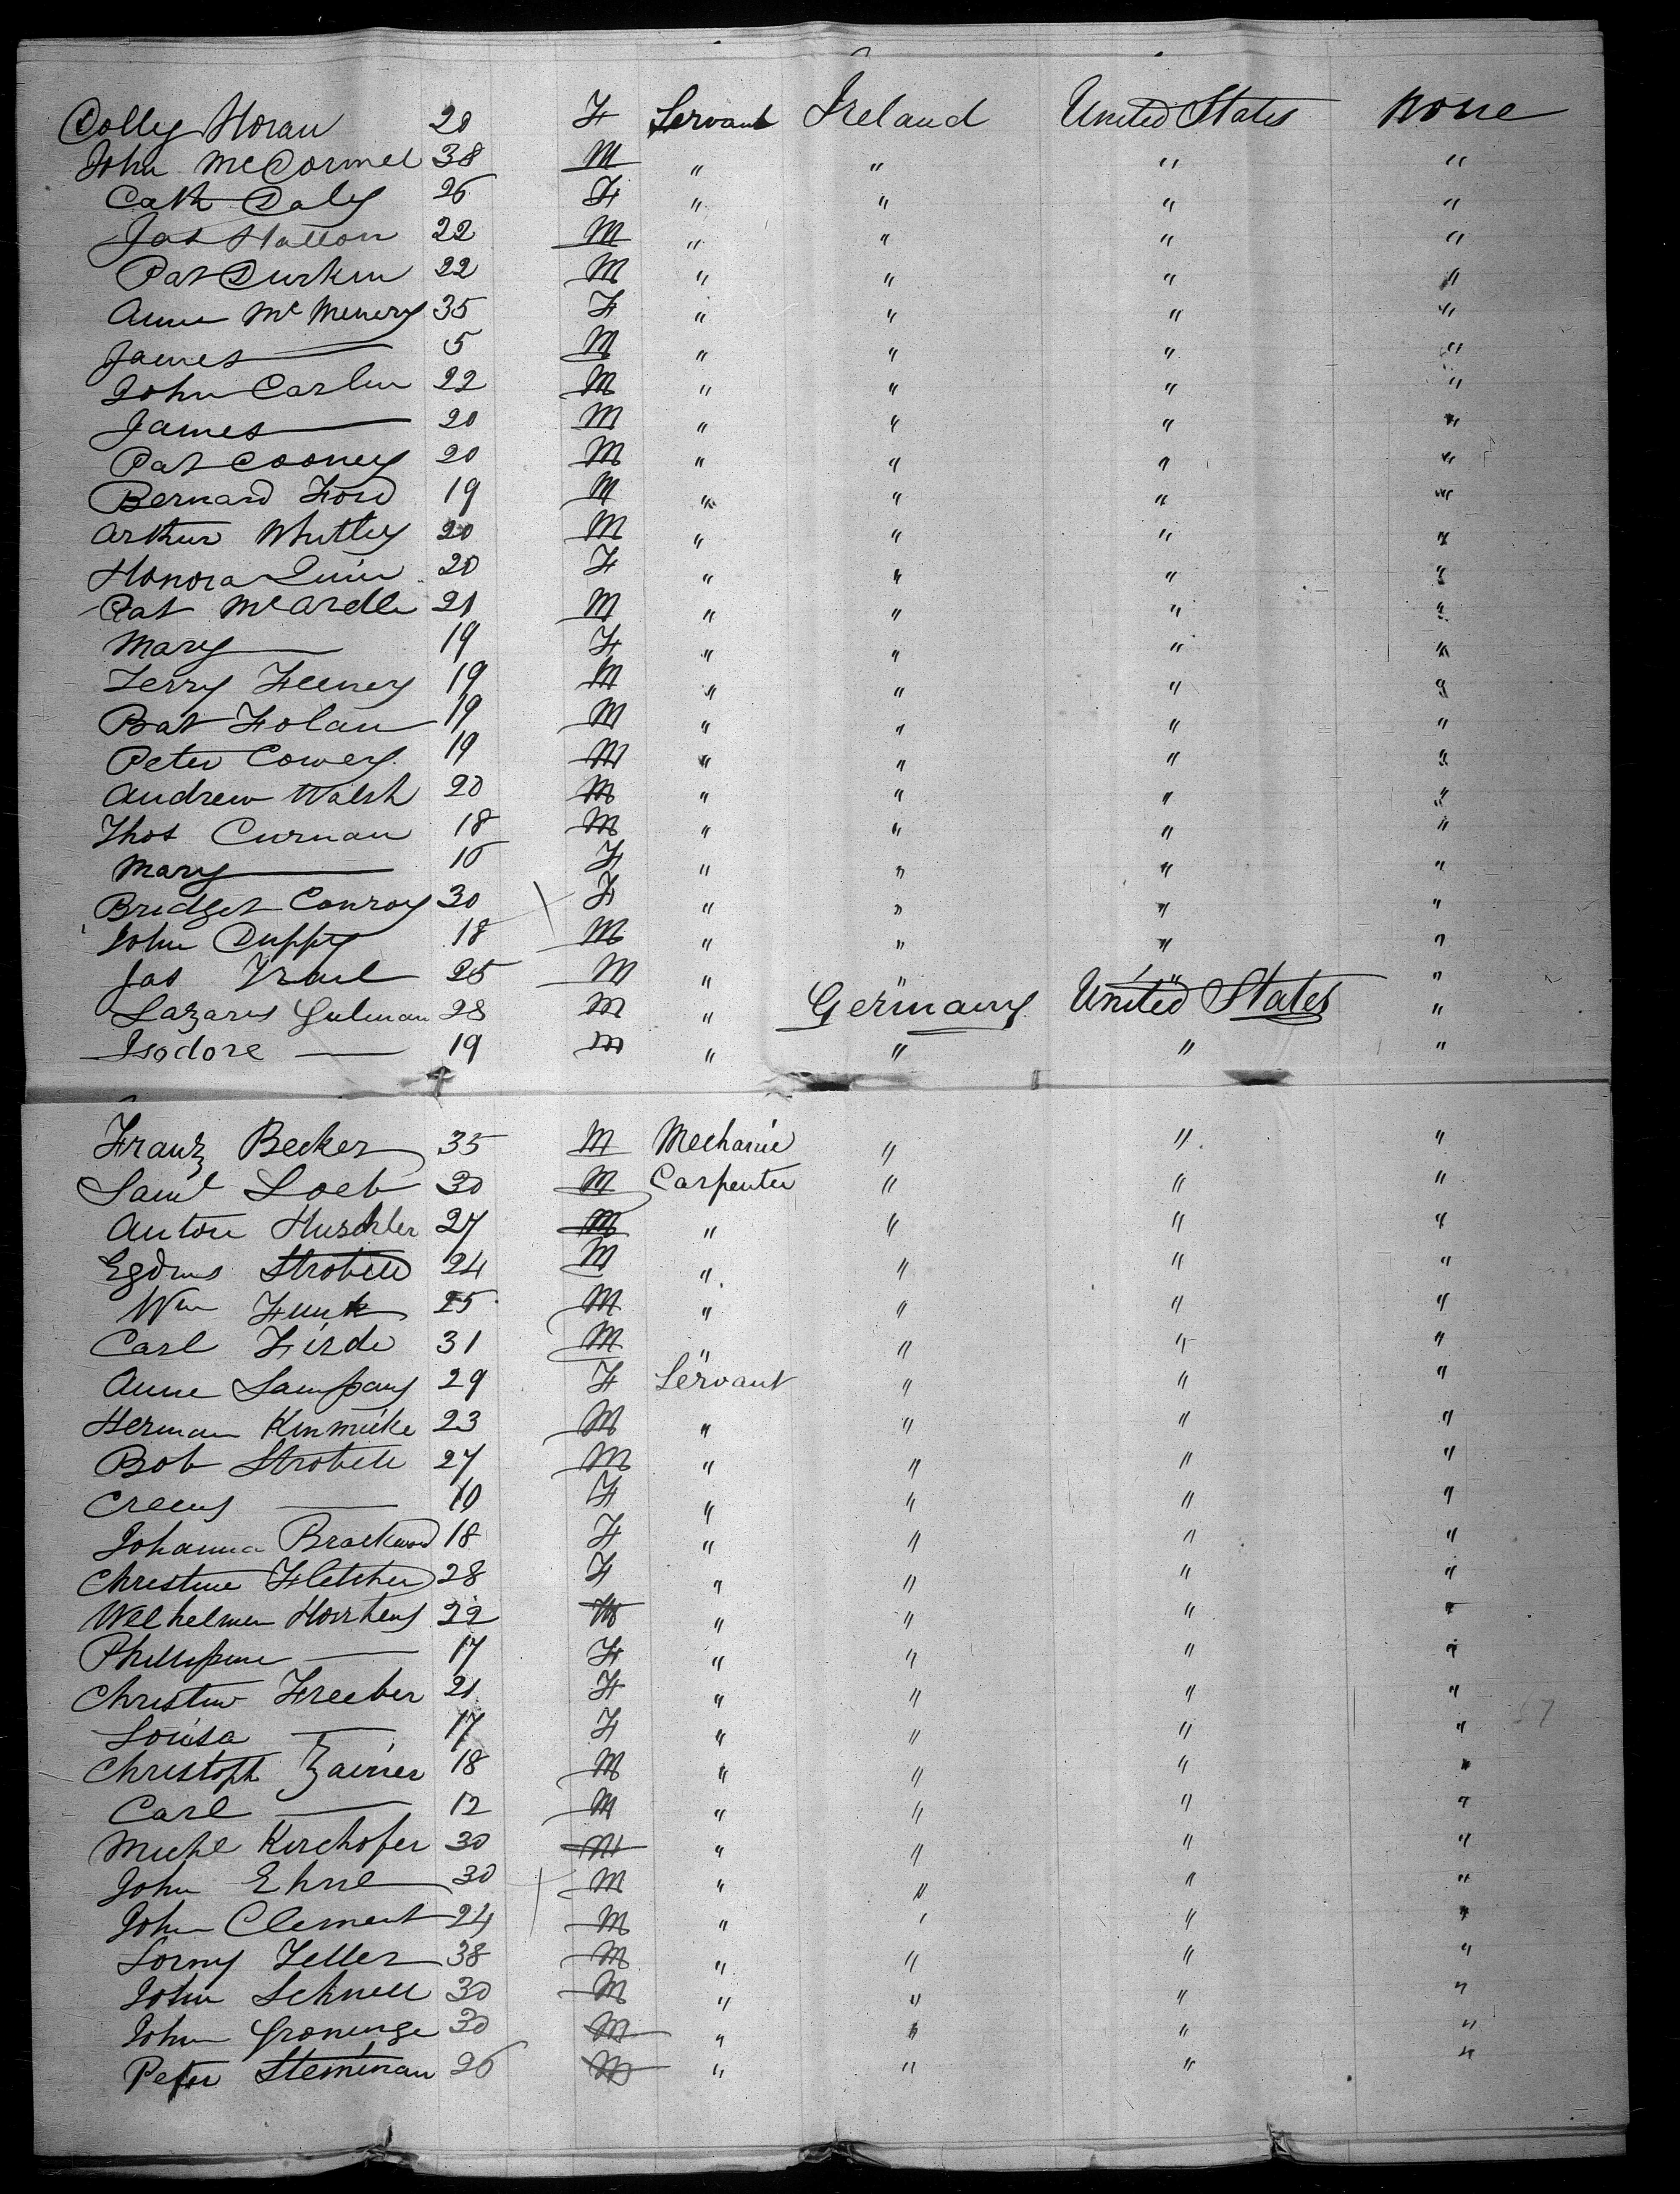 Colley Horan 20 F Servant Ireland United States None
John McCormel 38 M " " " "
Cath Daly 26 F " " " "
Jas Hatton 22 M " " " "
Pat Durkin 22 M " " " "
Anne McMenery 35 F " " " "
James — 5 M " " " "
John Carlin 22 M " " " "
James — 20 M " " " "
Pat Cooney 20 M " " " "
Bernard Ford 19 M " " " "
Arthur Whitley 20 M " " " "
Honora Quin 20 F " " " "
Pat McArdle 21 M " " " "
Mary — 19 F " " " "
Terry Feeney 19 M " " " "
Bat Folan 19 M " " " "
Peter Cowey 19 M " " " "
Andrew Walsh 20 M " " " "
Thos Curnan 18 M " " " "
Mary — 16 F " " " "
Bridget Conroy 30 F " " " "
John Duffy 18 M " " " "
Jas Trail 25 M " " " "
Lazarus Gulman 28 M " Germany United States "
Isodore — 19 M " " " "
Franz Becker 35 M Mechanic " " "
Saml Loeb 30 M Carpenter " " "
Anton Huschler 27 M " " " "
Strobell 24 M " " " "
Wm Funk 25 M " " " "
Carl Firde 31 M " " " "
Anne Sampany 29 F Servant " " "
Herman Kinmicke 23 M " " " "
Bob Strobell 27 M " " " "
— 10 F " " " "
Johanna 18 F " " " "
Christine Fletcher 28 F " " " "
Welhelmen 22 M " " " "
Phillipine — 17 F " " " "
Christine Freeber 21 F " " " "
Louisa — 17 F " " " "
Christoph Zainer 18 M " " " "
Carl — 12 M " " " "
Michl Kirchofer 30 M " " " "
John Ehnl 30 M " " " "
John Clement 24 M " " " "
Zeller 38 M " " " "
John Schnell 30 M " " " "
John Groninge 30 M " " " "
Peter Steminan 26 M " " " "